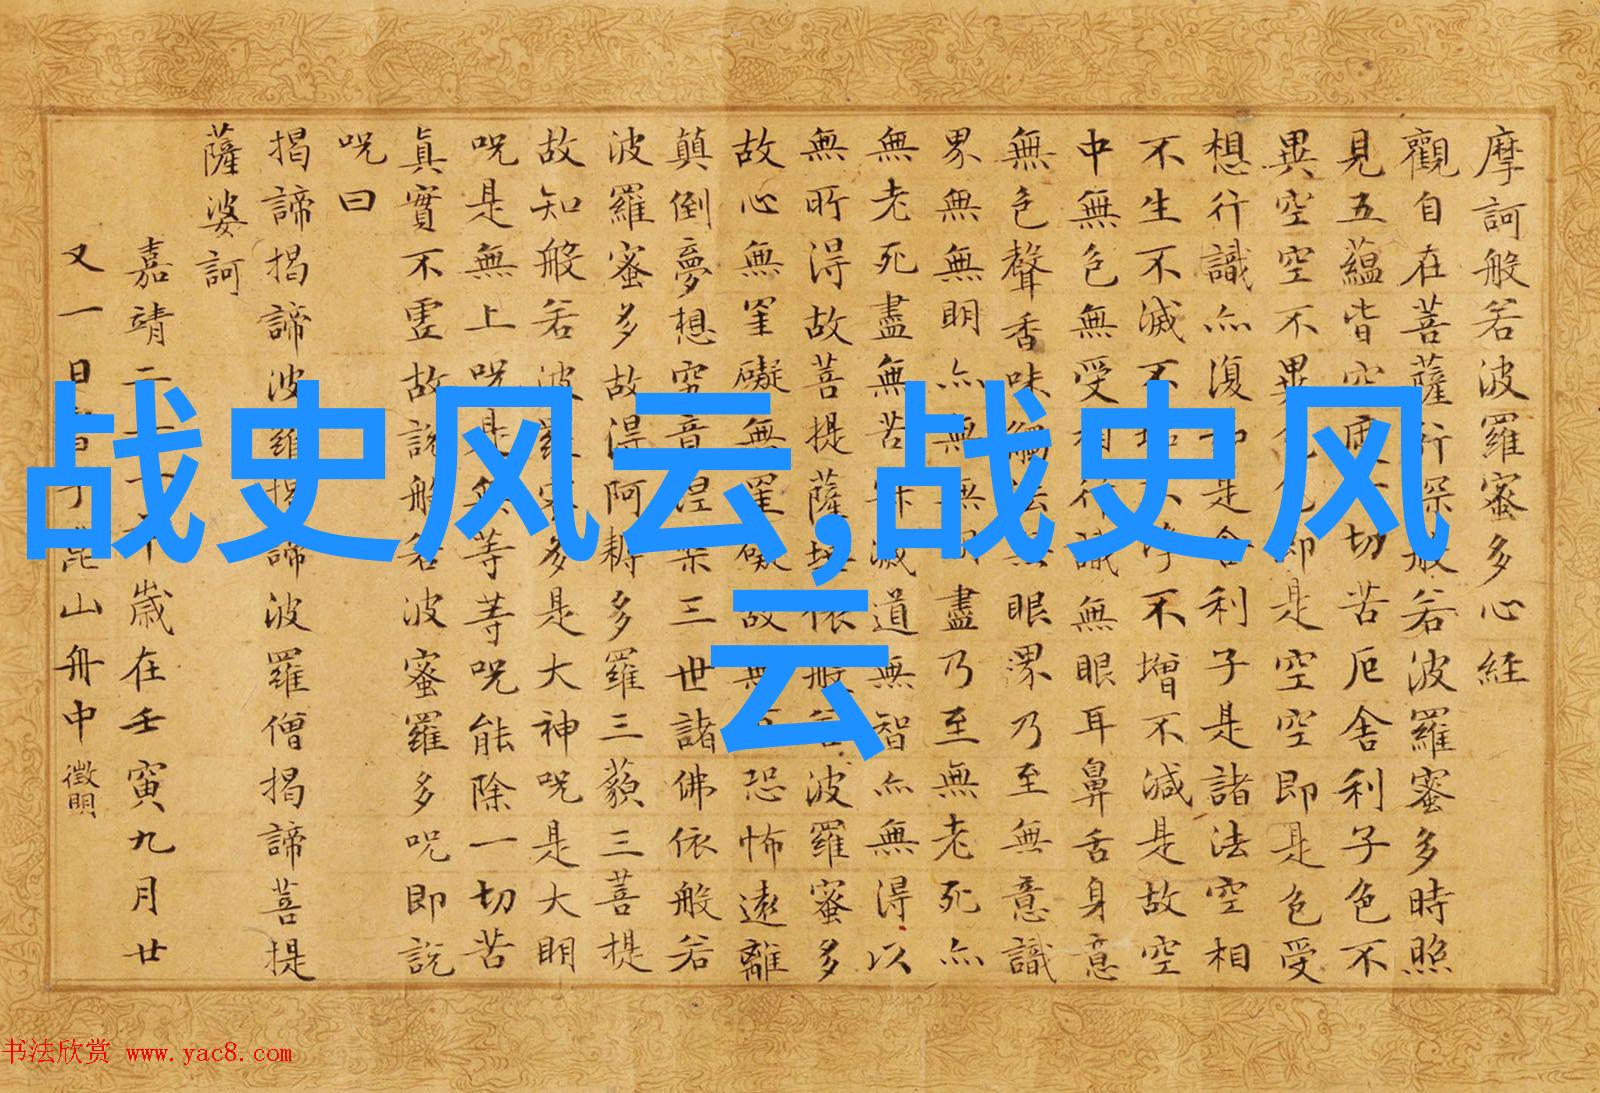 摩訶般若波羅蜜多心経
觀自在菩薩行深般若波羅蜜多時照
見五蘊皆空度切苦厄舍利子色不
異空空不異色色即是空空即是色受
想行識亦復如是舍利子是諸法空相
不生不滅不垢不淨不增不減是故空
中無色無受想行識無眼耳鼻舌身意
無色聲香味觸法無眼界乃至無意識
界無無明亦無無明盡乃至無老死亦
無老死盡無苦集滅道無智亦無得以
無所得故菩提薩埵依般若波羅蜜多
故心無罣礙無罣礙故無恐怖遠離
顛倒夢想究竟涅槃三世諸佛依般若
波羅蜜多故得阿耨多羅三藐三菩提
故知般若波羅蜜多是大神咒是大明
咒是無上咒是無等等咒能除一切苦
真實不虛故說般若波羅蜜多咒即說
咒曰
揭諦揭諦波羅揭諦波羅僧揭諦菩提
薩婆訶
嘉靖二十一年歲在壬寅九月廿
又一日書于崑山舟中 徵明
战史风云,战史风
云
书法欣赏 www.yac8.com